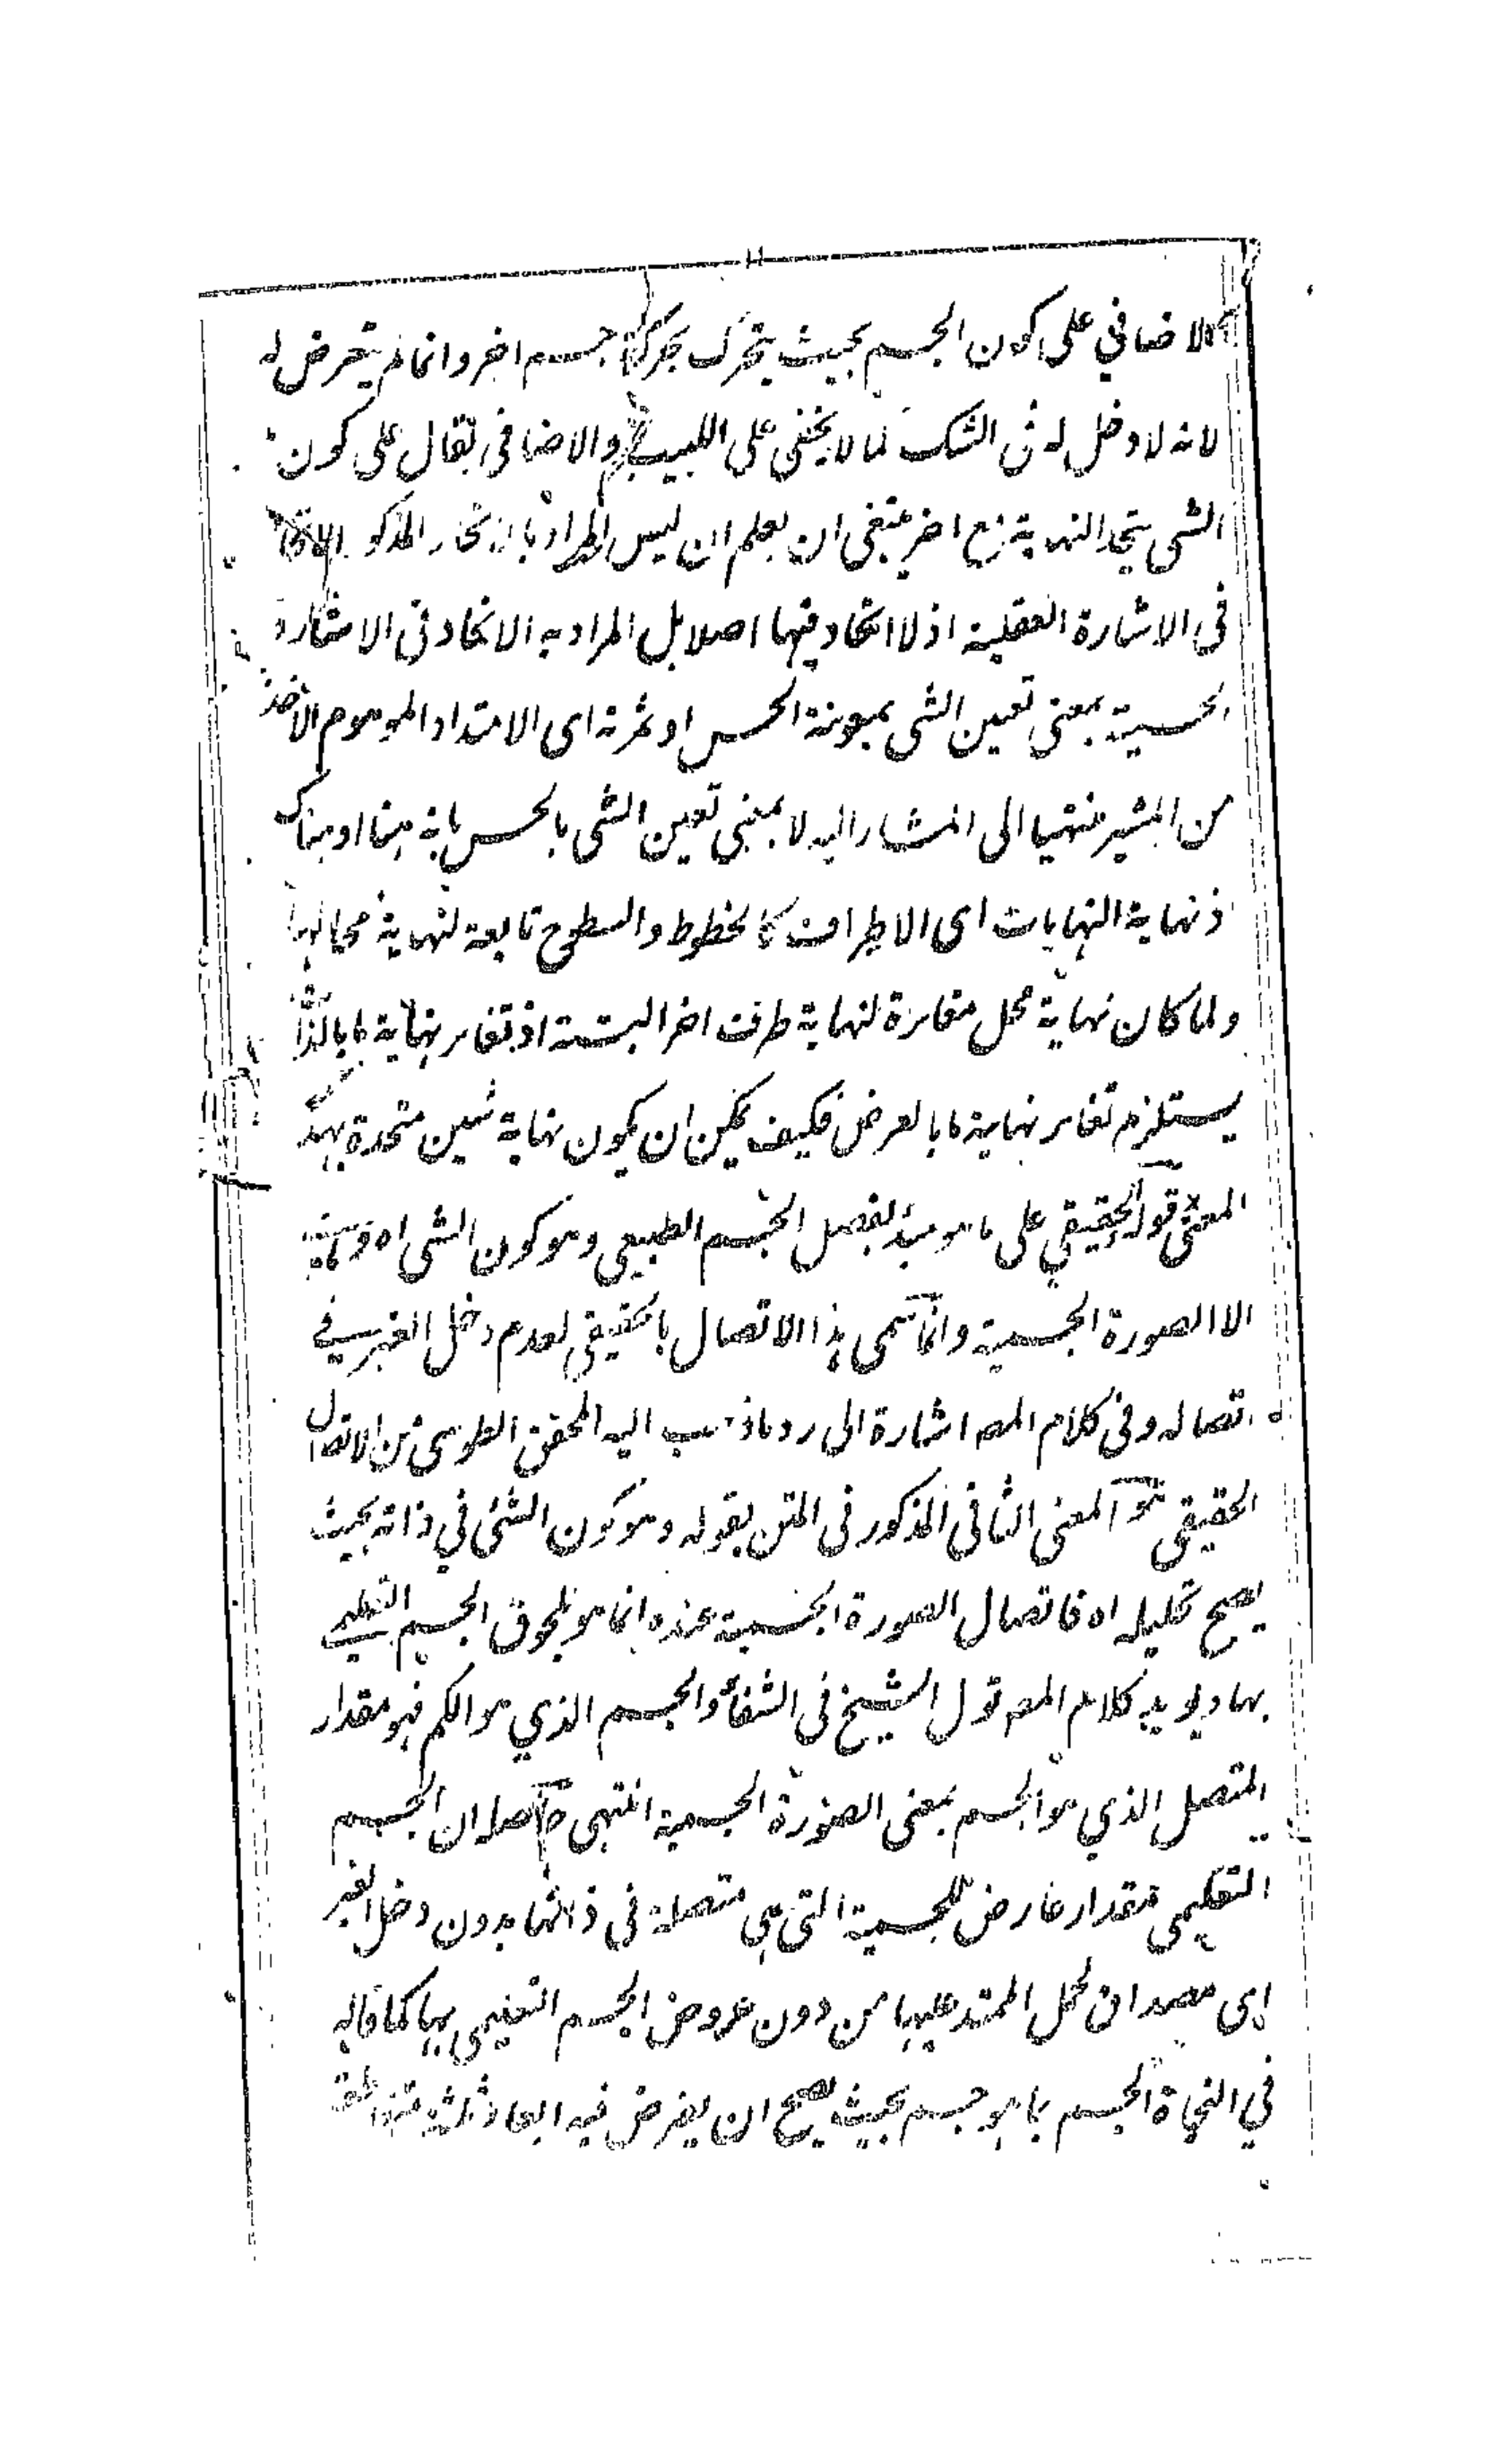 الاضافي على كون الجسم بحيث يتحرك بحركة جسم اخر وانما لم يتعرض له
لانه لا دخل له في الشك كما لا يخفى على اللبيب والاضافي يقال على كون
الشي متحد النهاية مع اخر ينبغي ان يعلم ان ليس المراد بالاتحاد المذكور الاتحاد
في الاشارة العقلية اذ لا اتحاد فيها اصلا بل المراد به الاتحاد في الاشارة
الحسية بمعنى تعين الشي بمعونة الحس او ثمرته اى الامتداد الموهوم الآخذ
من المشير منتهيا الى المشار اليه لا بمعنى تعين الشي بالحس بانه هنا او هناك
اذ نهاية النهايات اى الاطراف كالخطوط والسطوح تابعة لنهاية محالها
ولما كان نهاية محل مغايرة لنهاية طرف اخر البتة اذ تغاير نهاية ما بالذات
يستلزم تغاير نهاية ما بالعرض فكيف يمكن ان يكون نهاية شيئين متحدة بهذا
المعنى قوله الحقيقي على ما هو مبدأ لفصل الجسم الطبيعي وهو كون الشي اه
الا الصورة الجسمية وانما سمى هذا الاتصال بالحقيقي لعدم دخل الغير في
اتصاله وفي كلام المص اشارة الى رد ما ذهب اليه المحقق الطوسى من الاتصال
الحقيقي هو المعنى الثاني المذكور في المتن بقوله وهو كون الشئ في ذاته بحيث
يصح تحليله اه فاتصال الصورة الجسمية عنده انما هو بلحوق الجسم التعليمي
بها ويويد كلام المص قول الشيخ في الشفاء والجسم الذي هو الكم فهو مقدار
المتصل الذي هو الجسم بمعنى الصورة الجسمية انتهى حاصله ان الجسم
التعليمي مقدار عارض للجسمية التي هي متصلة في ذاتها بدون دخل الغير
اى مصداق لحمل الممتد عليها من دون عروض الجسم التعليمي بها كما قاله
في النجاة الجسم بما هو جسم بحيث يصح ان يفرض فيه ابعاد ثلثة متقاطعة